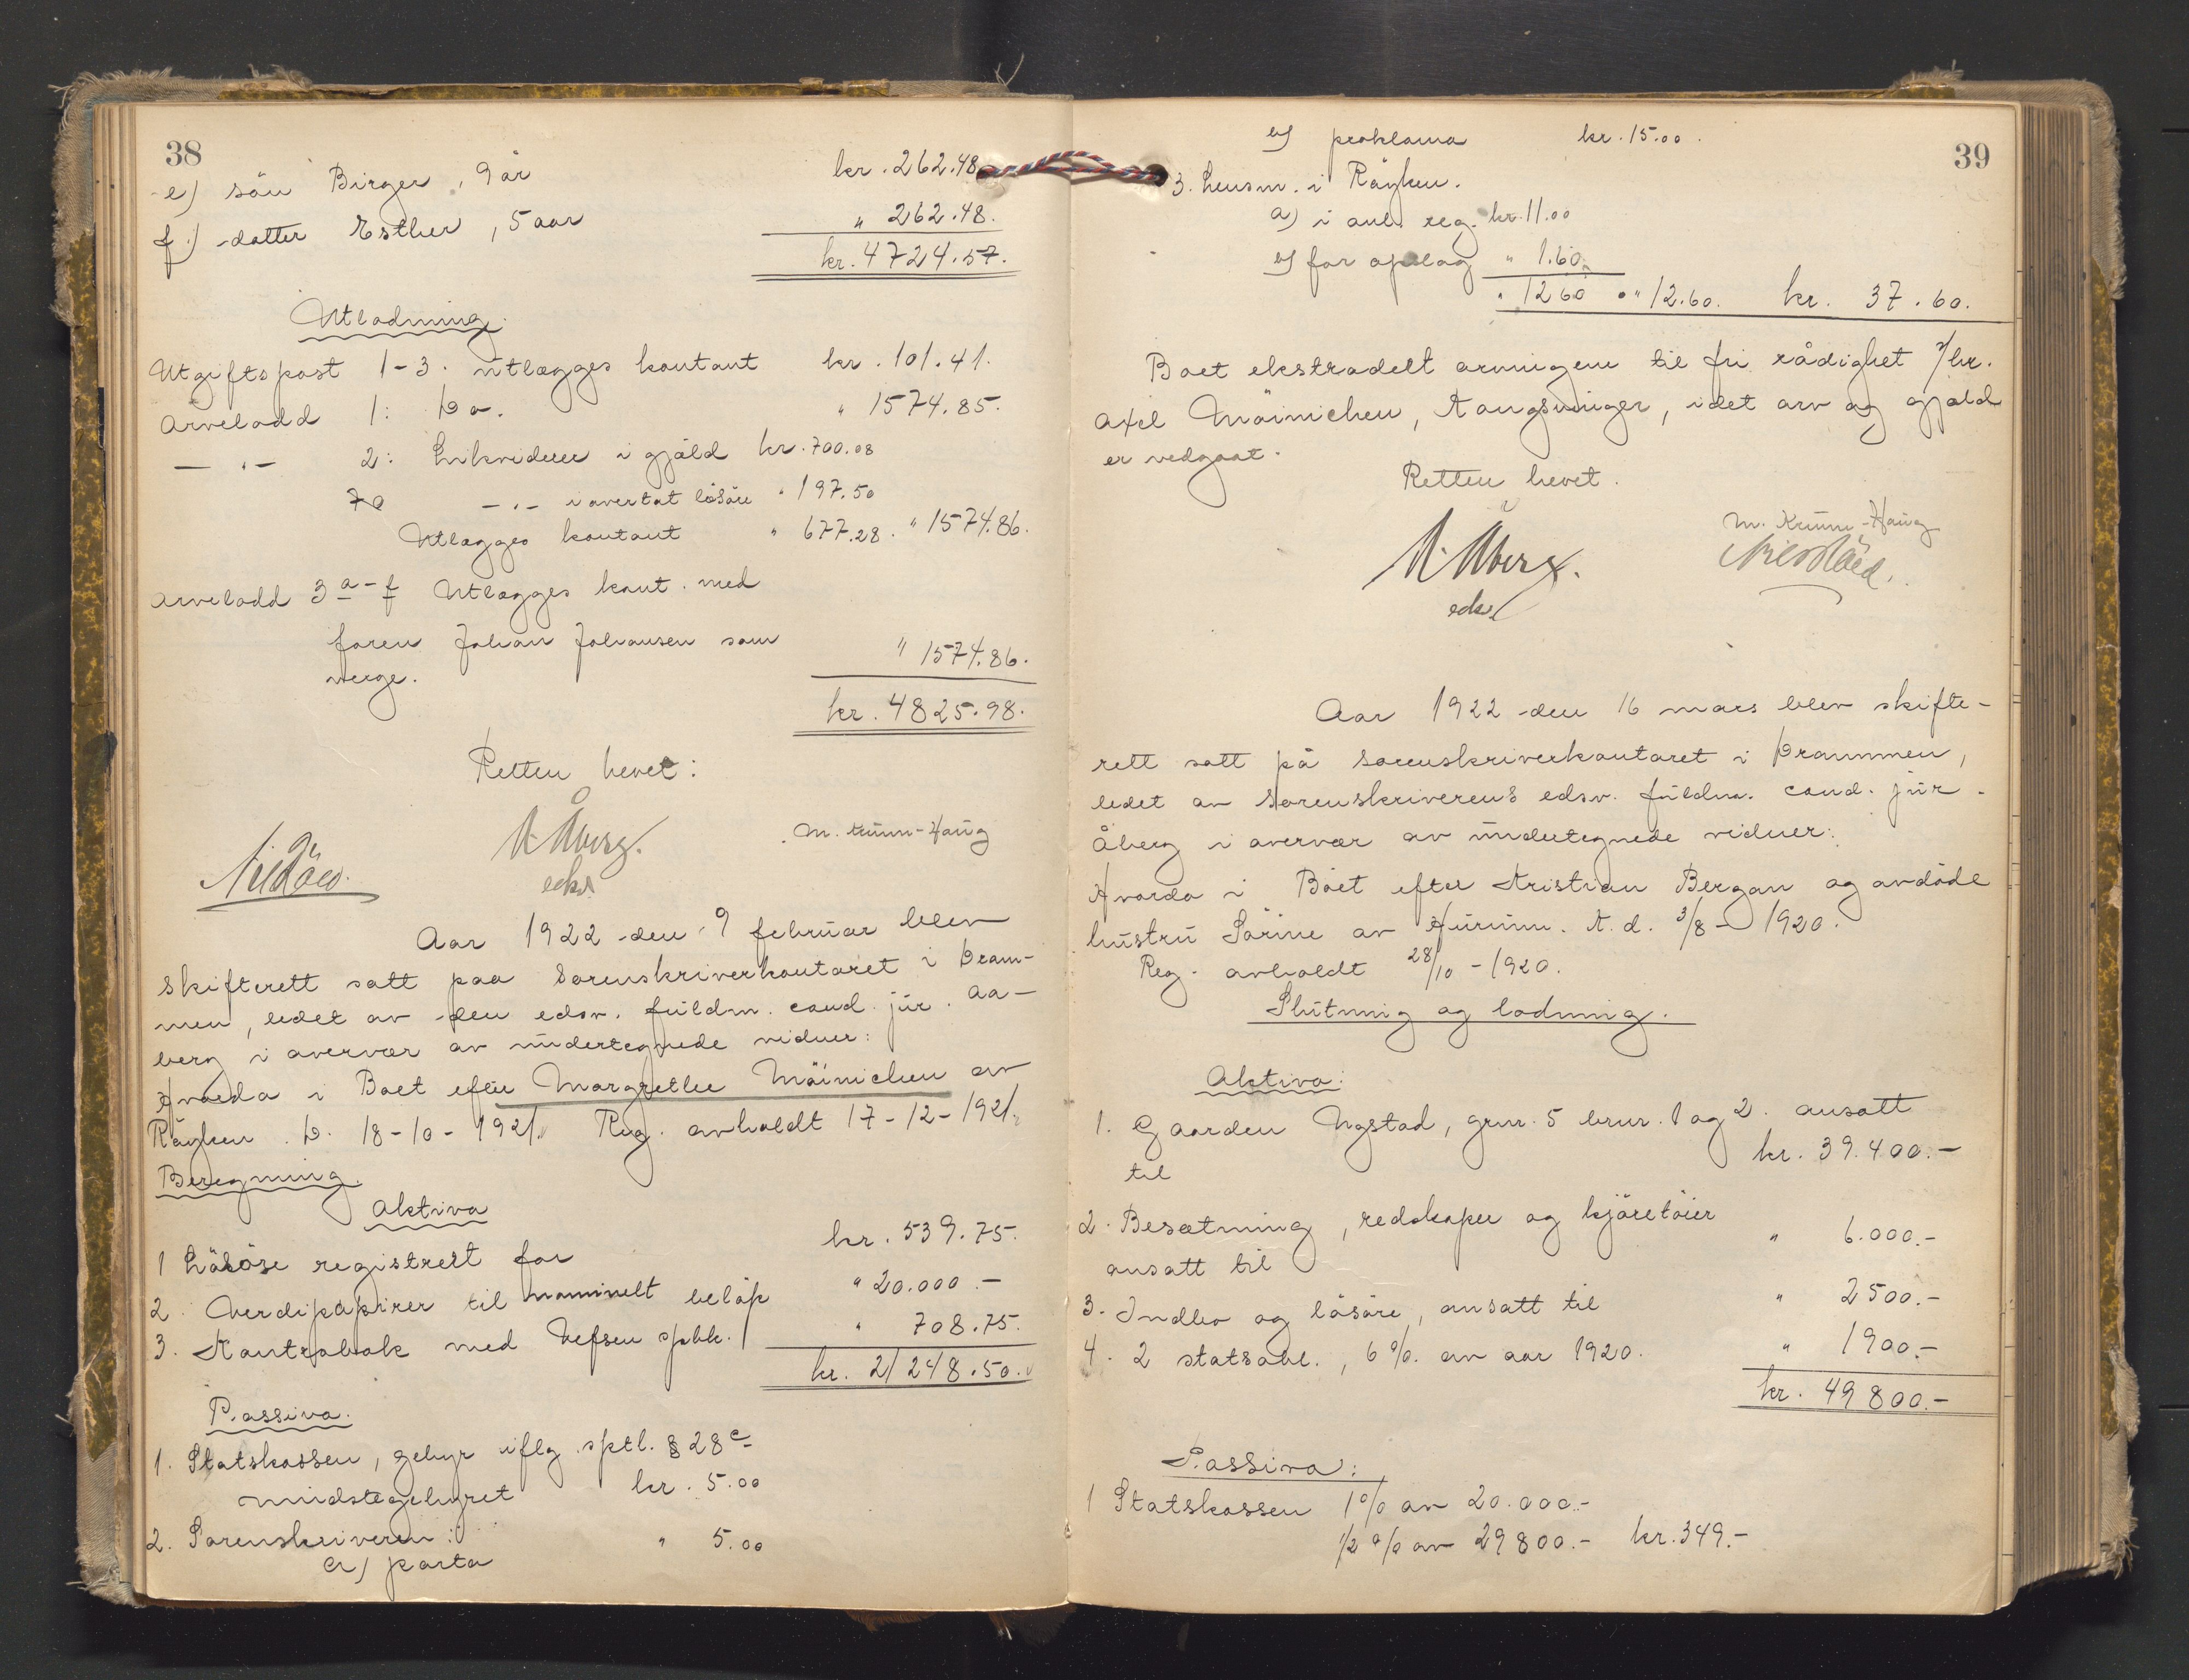 38
e) sön Birger, 9 år kr. 262.48.
f.) datter Esther, 5 aar " 262.48.
kr. 4724.57.
Utlodning.
Utgiftspost 1-3. utlægges kontant kr. 101.41.
Arvelodd 1: Do. " 1574.85.
— " — 2: Likviderer i gjäld kr. 700.08
— " — i overtat lösöre " 197.50
Utlægges kontant " 677.28. " 1574.86.
Arvelodd 3 a-f Utlægges kont. med
faren Johan Johansen som
verge. " 1574.86.
kr. 4825.98.
Retten hevet:
N. Åberg. M. Krumm-Haug
edsv
Aar 1922 den 9 februar blev
skifterett satt paa Sorenskriverkontoret i Dram-
men, ledet av den edsv. fuldm. cand. jur. Aa-
berg i overvær av undertegnede vidner:
Hvorda i Boet efter Margrethe Möinichen av
Röyken. D. 18-10-1921. Reg. avholdt 17-12-1921.
Beregning.
Aktiva
1 Lösöre registrert for kr. 539.75.
2. Verdipapirer til nominelt belöp " 20.000.—
3. Kontrabok med Vefsen spbk. " 708.75.
kr. 21248.50.
Passiva.
1. Statskassen, gebyr iflg. sptl. § 28 c
mindstegebyret kr. 5.00
2. Sorenskriveren:
a) porto " 5.00
39
b) proklama kr. 15.00.
3. Lensm. i Röyken.
a) i anl. reg. kr. 11.00
b) for opslag " 1.60
" 12.60 " 12.60. kr. 37.60.
Boet ekstradelt arvingene til fri rådighet v/hr.
Axel Möinichen, Kongsvinger, idet arv og gjæld
er vedgaat.
Retten hevet.
N. Åberg. M. Krumm-Haug
edsv
Aar 1922 den 16 mars blev skifte-
rett satt på sorenskriverkontoret i Drammen,
ledet av Sorenskriverens edsv. fuldm. cand. jur.
Åberg i overvær av undertegnede vidner:
Hvorda i Boet efter Kristian Bergan og avdöde
hustru Sörine av Hurum. K. d. 3/8-1920.
Reg. avholdt 28/10-1920.
Slutning og lodning.
Aktiva:
1. Gaarden Ugstad, gnr. 5 brnr. 1 og 2. ansatt
til kr. 39.400.—
2. Besætning, redskaper og kjöretöier
ansatt til " 6.000.—
3. Indbo og lösöre, ansatt til " 2500.—
4. 2 statsobl., 6%. av aar 1920. " 1900.—
kr. 49800.—
Passiva:
1 Statskassen 1% av 20.000.—
1/2 % av 29800.— kr. 349.—